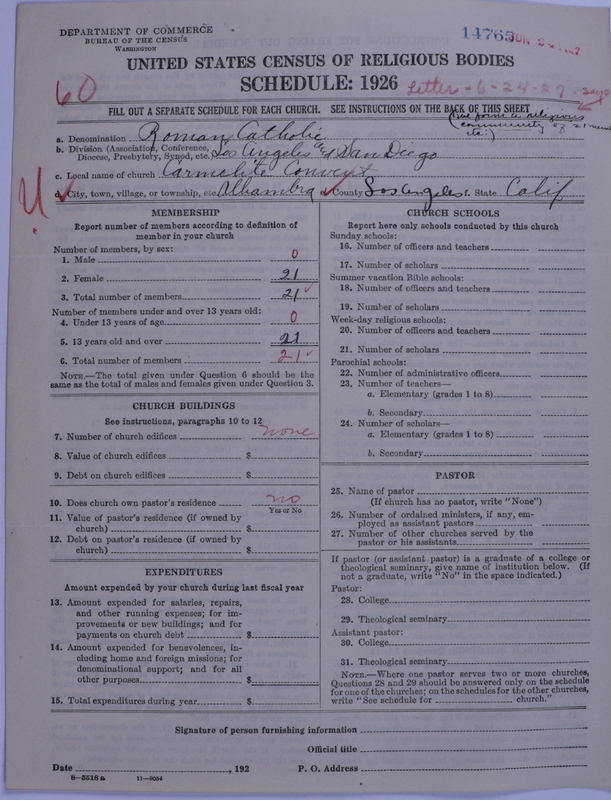 DEPARTMENT OF COMMERCE
BUREAU OF THE CENSUS
WASHINGTON
14763
UNITED STATES CENSUS OF RELIGIOUS BODIES
SCHEDULE: 1926
60
Letter-6-24-27.
FILL OUT A SEPARATE SCHEDULE FOR EACH CHURCH. SEE INSTRUCTIONS ON THE BACK OF THIS SHEET
a. Denomination Roman Catholic
b. Division (Association, Conference, Diocese, Presbytery, Synod, etc.) Los Angeles and San Diego
c. Local name of church Carmelite Convent
d. City, town, village, or township, etc. Alhambra e. County Los Angeles f. State Calif
MEMBERSHIP
Report number of members according to definition of
member in your church
Number of members, by sex:
1. Male 0
2. Female 21
3. Total number of members 21
Number of members under and over 13 years old:
4. Under 13 years of age 0
5. 13 years old and over 21
6. Total number of members 21
NOTE.—The total given under Question 6 should be the
same as the total of males and females given under Question 3.
CHURCH BUILDINGS
See instructions, paragraphs 10 to 12
7. Number of church edifices none
8. Value of church edifices $
9. Debt on church edifices $
10. Does church own pastor's residence no
Yes or No
11. Value of pastor's residence (if owned by
church) $
12. Debt on pastor's residence (if owned by
church) $
EXPENDITURES
Amount expended by your church during last fiscal year
13. Amount expended for salaries, repairs,
and other running expenses; for im-
provements or new buildings; and for
payments on church debt $
14. Amount expended for benevolences, in-
cluding home and foreign missions; for
denominational support; and for all
other purposes $
15. Total expenditures during year $
CHURCH SCHOOLS
Report here only schools conducted by this church
Sunday schools:
16. Number of officers and teachers
17. Number of scholars
Summer vacation Bible schools:
18. Number of officers and teachers
19. Number of scholars
Week-day religious schools:
20. Number of officers and teachers
21. Number of scholars
Parochial schools:
22. Number of administrative officers
23. Number of teachers—
a. Elementary (grades 1 to 8)
b. Secondary
24. Number of scholars—
a. Elementary (grades 1 to 8)
b. Secondary
PASTOR
25. Name of pastor
(If church has no pastor, write "None")
26. Number of ordained ministers, if any, em-
ployed as assistant pastors
27. Number of other churches served by the
pastor or his assistants
If pastor (or assistant pastor) is a graduate of a college or
theological seminary, give name of institution below. (If
not a graduate, write "No" in the space indicated.)
Pastor:
28. College
29. Theological seminary
Assistant pastor:
30. College
31. Theological seminary
NOTE.—Where one pastor serves two or more churches,
Questions 28 and 29 should be answered only on the schedule
for one of the churches; on the schedules for the other churches,
write "See schedule for church."
Signature of person furnishing information
Official title
Date , 192 P. O. Address
8—5518 a 11—9054